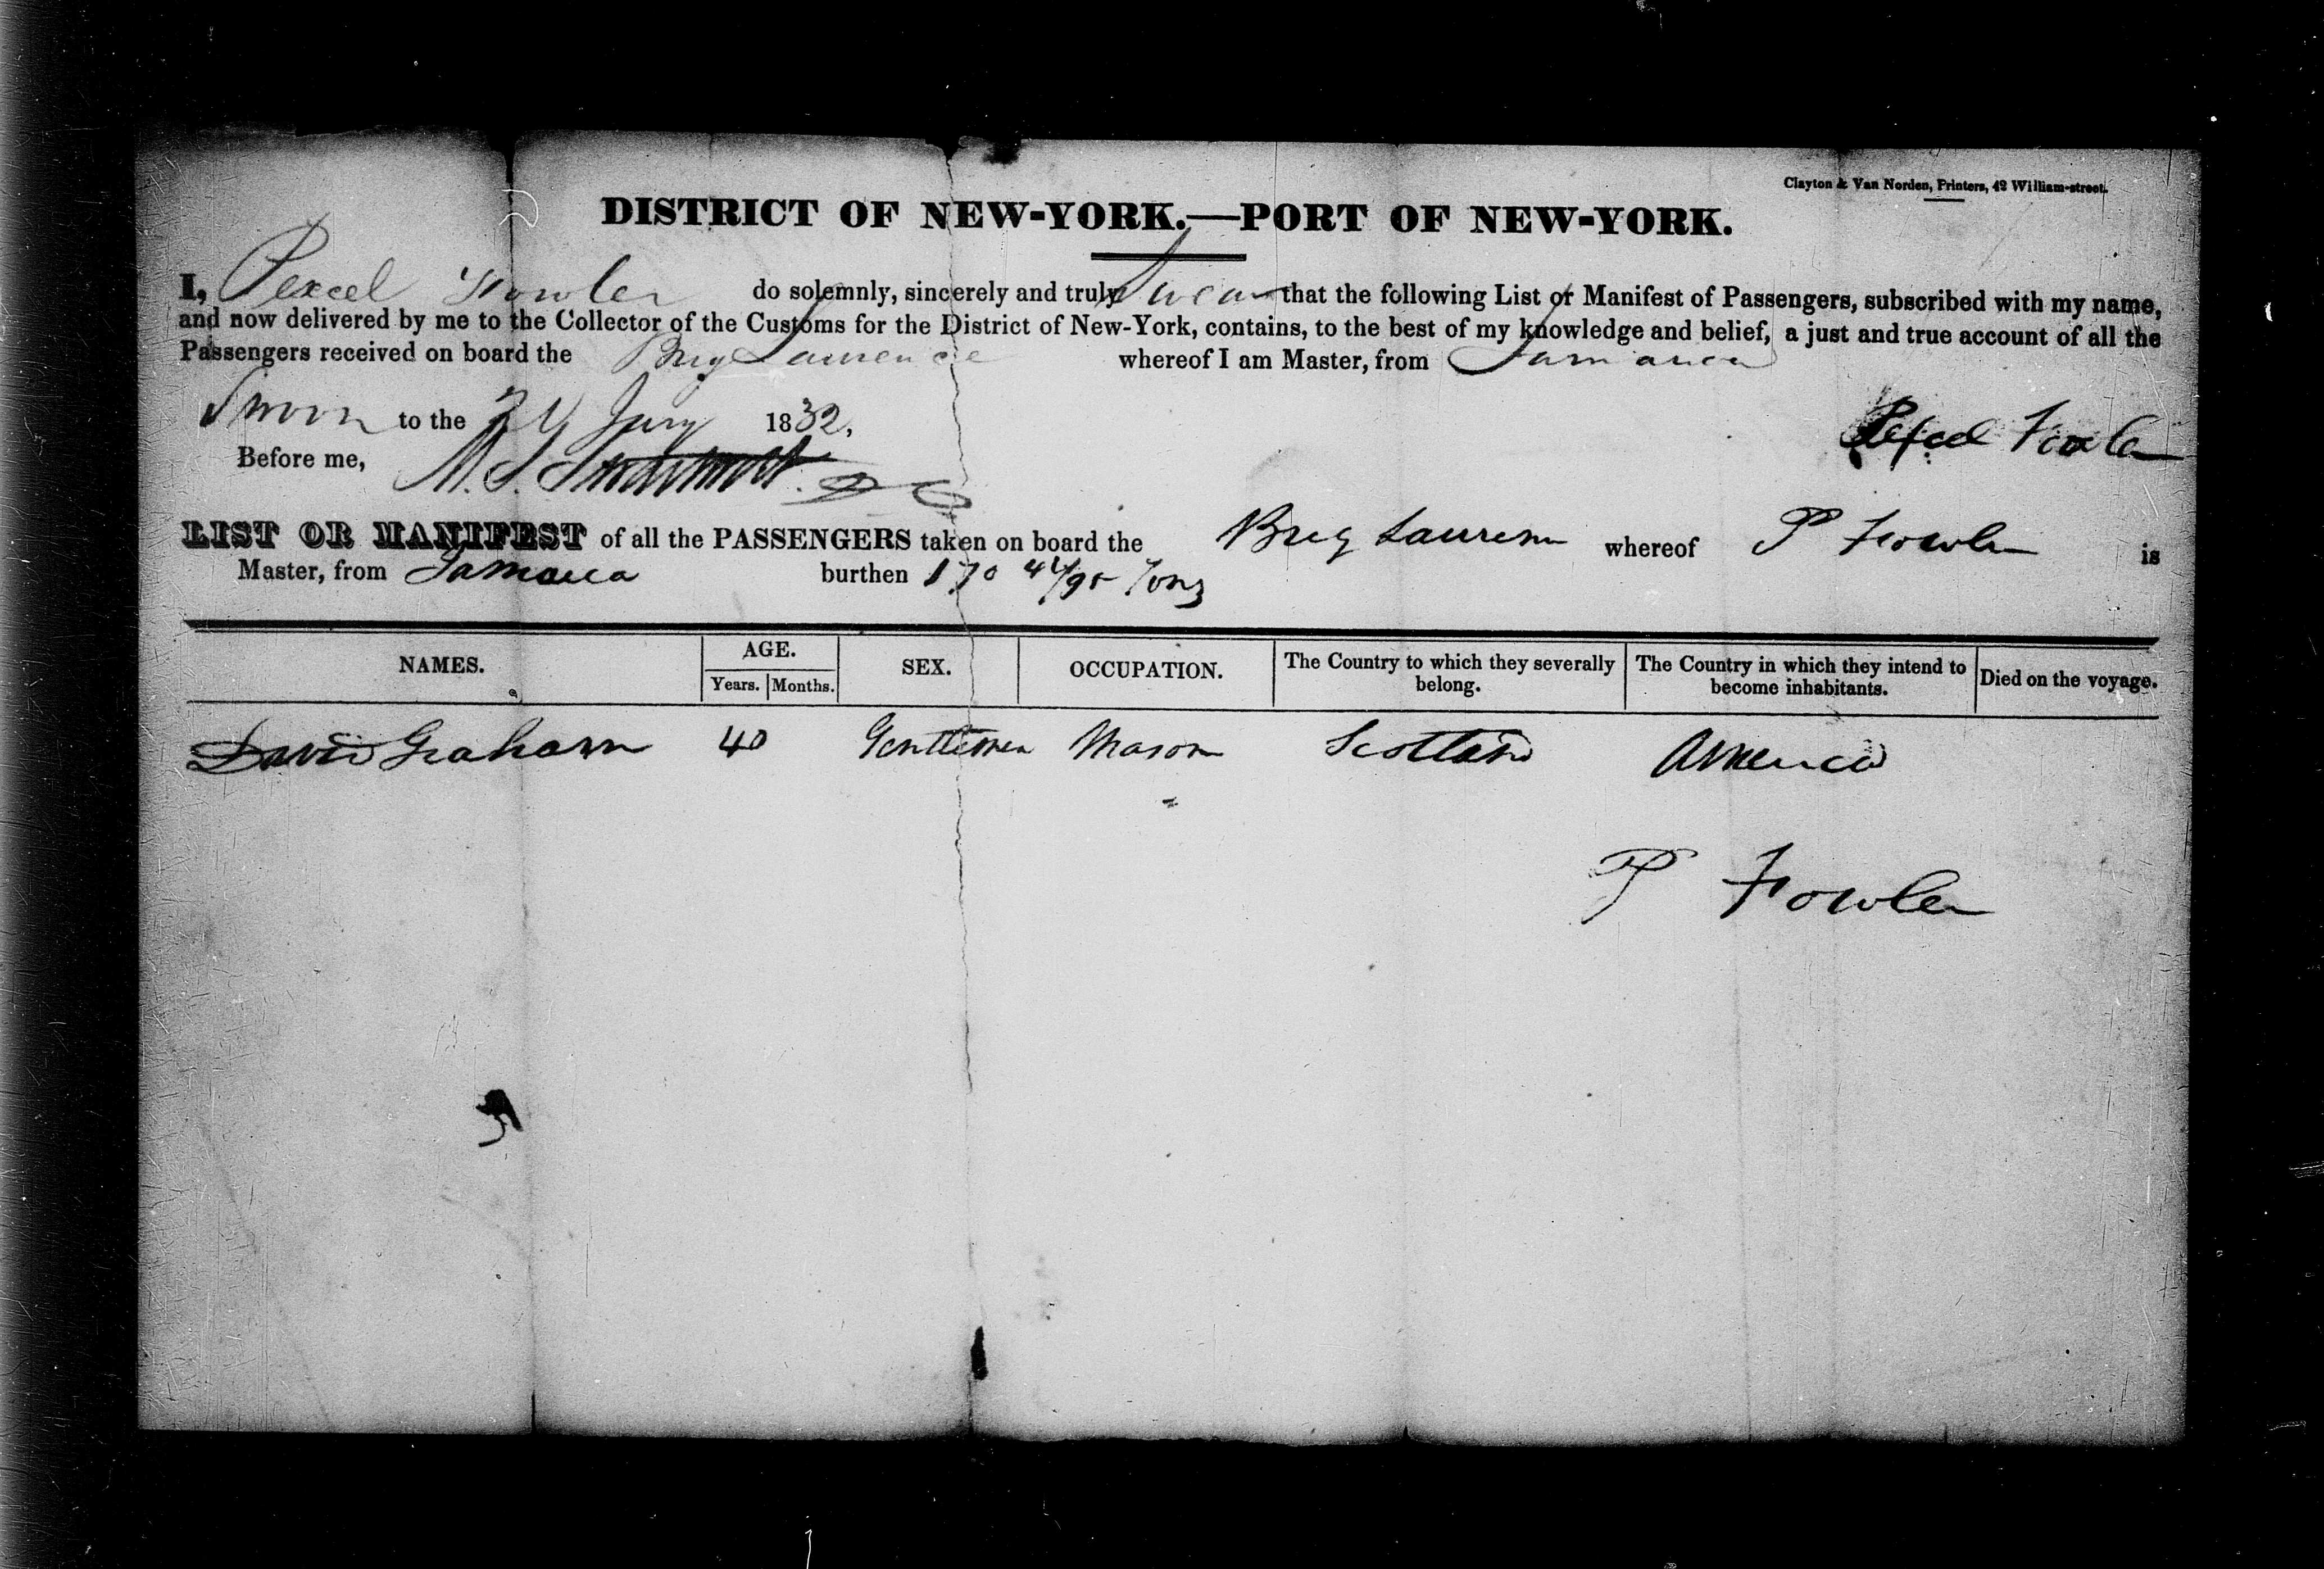 Clayton & Van Norden, Printers, 42 William-street.
DISTRICT OF NEW-YORK.—PORT OF NEW-YORK.
I, Pexcel Fowler do solemnly, sincerely and truly Swear that the following List or Manifest of Passengers, subscribed with my name,
and now delivered by me to the Collector of the Customs for the District of New-York, contains, to the best of my knowledge and belief, a just and true account of all the
Passengers received on board the Brig Laurence whereof I am Master, from Jamaica
Sworn to the 1832,
Pexcel Fowler
Before me,
LIST OR MANIFEST of all the PASSENGERS taken on board the Brig Laurence whereof P Fowler is
Master, from Jamaica burthen 170 Tons
NAMES. AGE. Years. Months. SEX. OCCUPATION. The Country to which they severally belong. The Country in which they intend to become inhabitants. Died on the voyage.
David Graham 40 Gentlemen Mason Scotland America
P Fowler